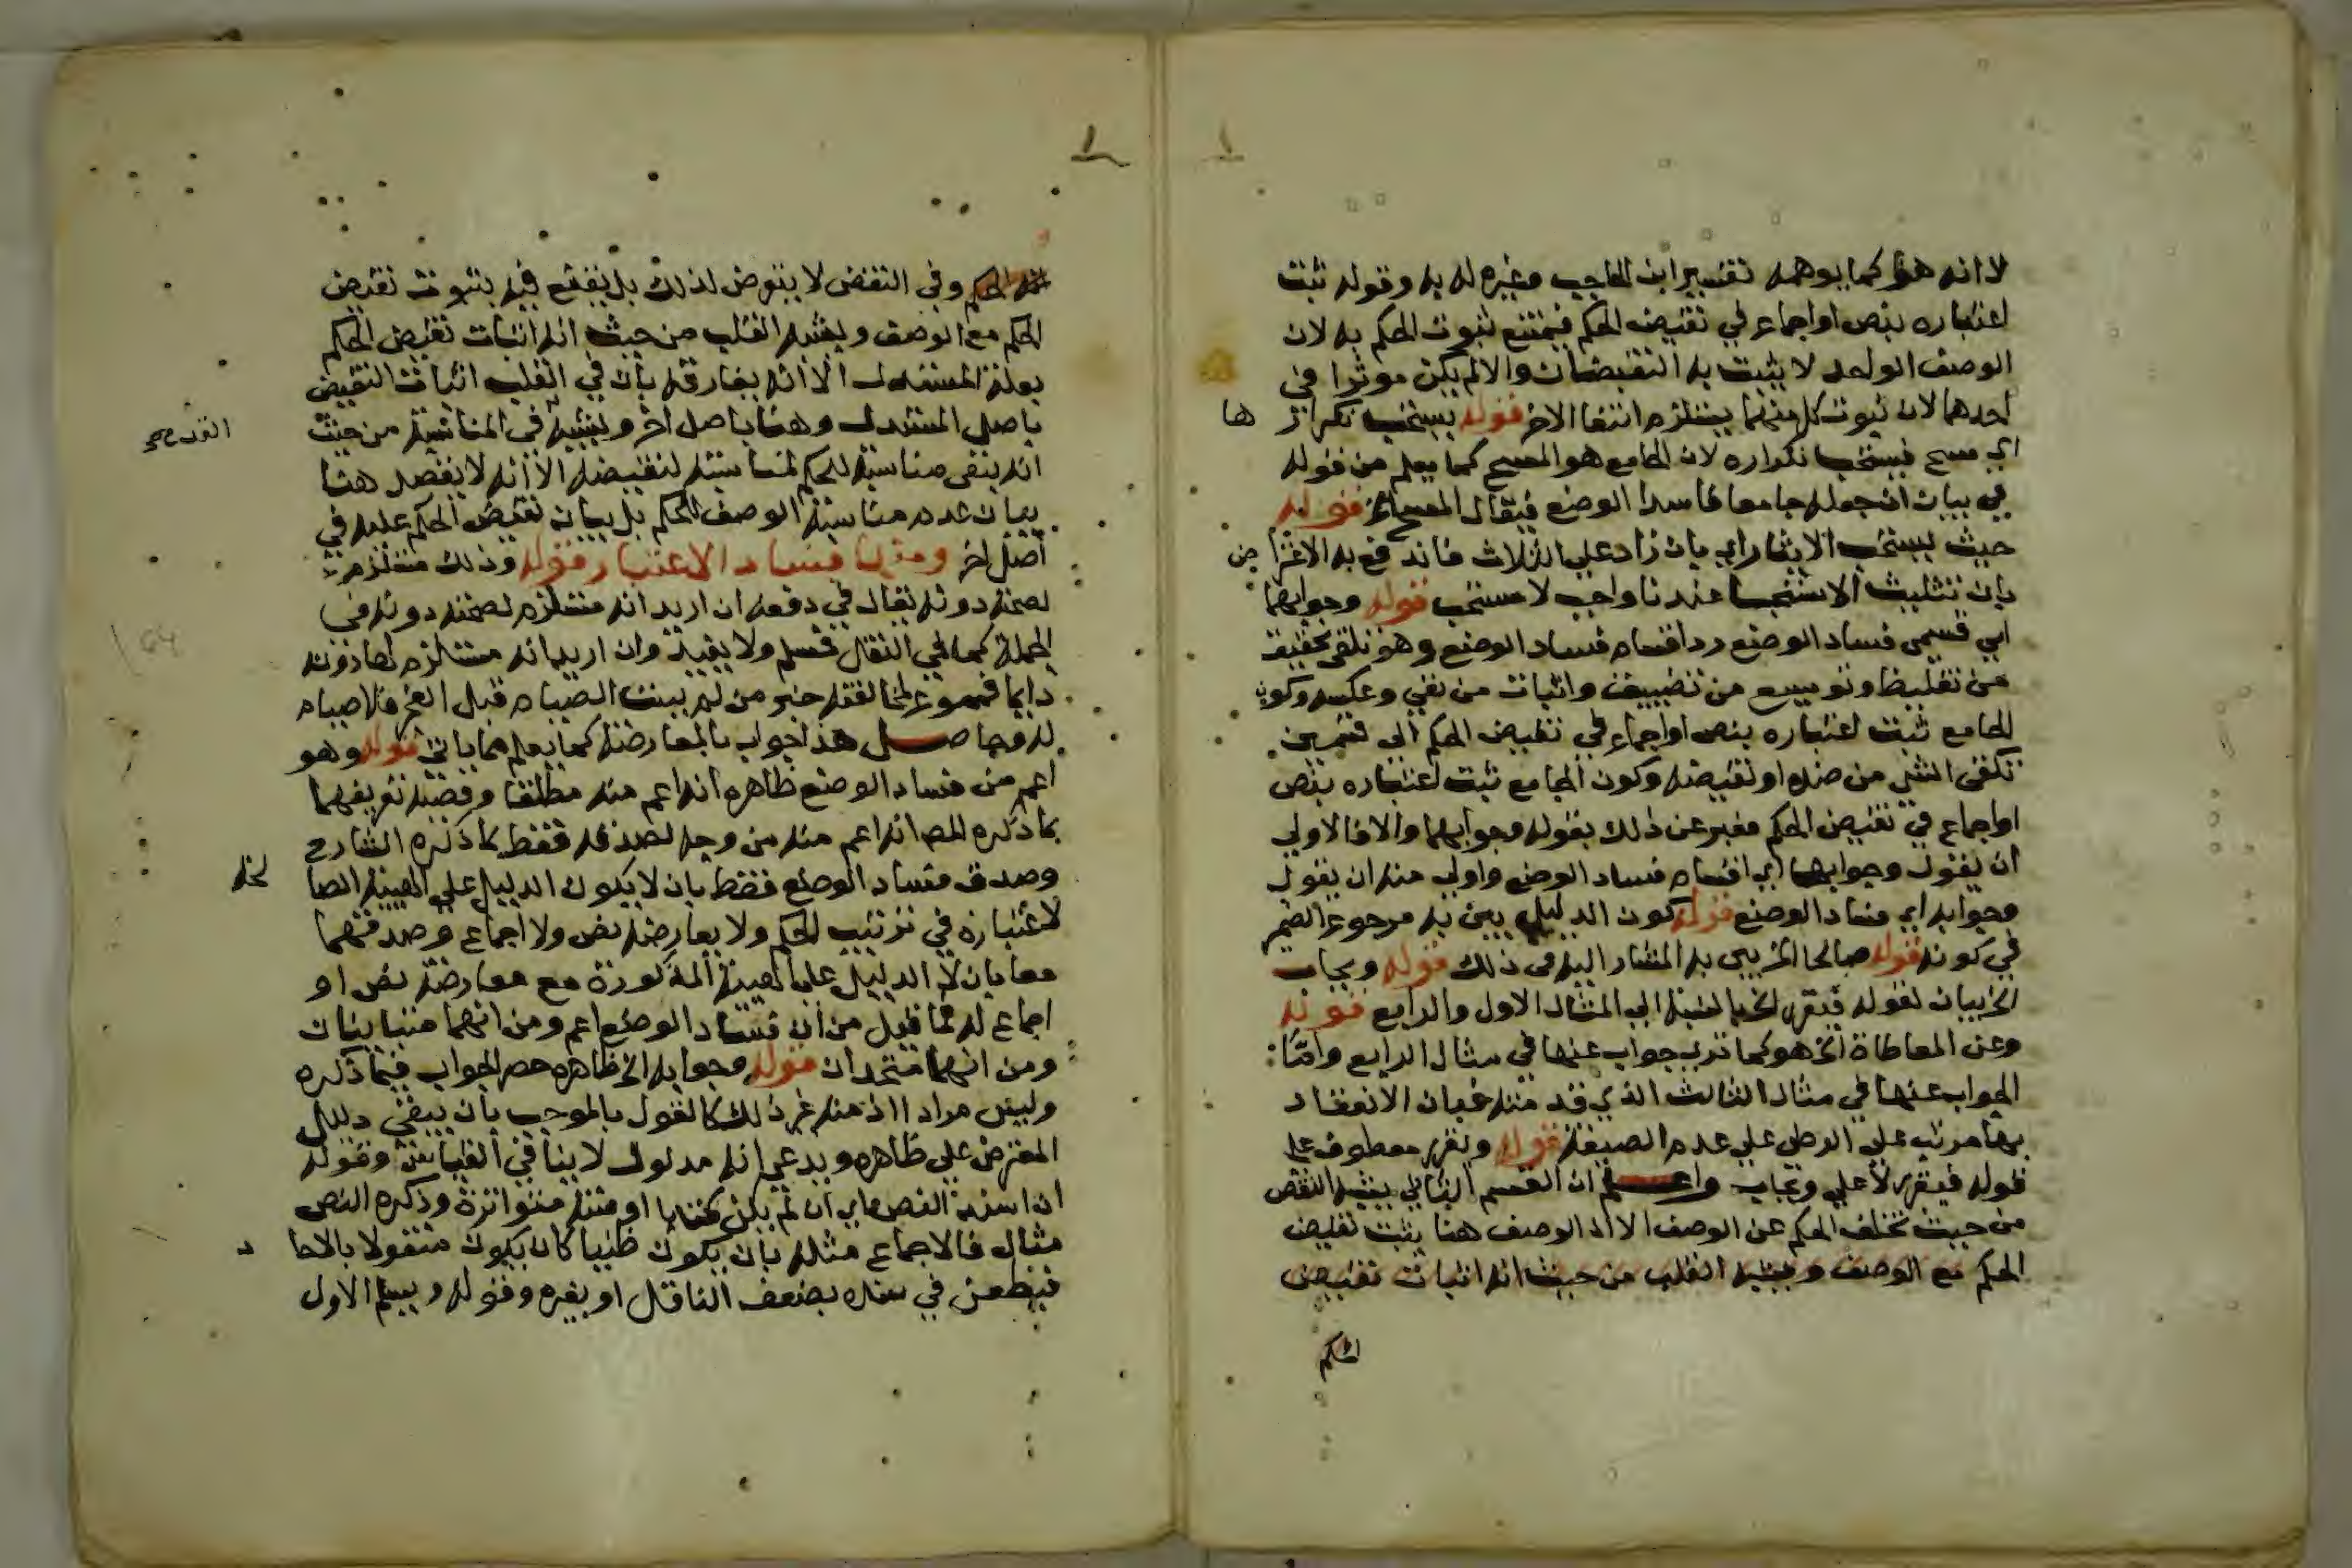 لا انه هو كما يوهمه تفسير ابن الحاجب وغيره له به وقوله ثبت
اعتباره بنص او اجماع في نقيض الحكم فيمتنع ثبوت الحكم به لان
الوصف الواحد لا يثبت به النقيضان والا لم يكن موثرا في
احدهما لان ثبوت كل منهما يستلزم انتفا الاخر قوله يستحب تكرار ها
اي مسح فيستحب تكراره لان الجامع هو المسح كما يعلم من قوله
في بيان ان جعله جامعا فاسد الوضع فيقال المسح قوله
حيث يستحب الايتار اي بان زاد على الثلاث فاندفع به الاعترا ض
بان تثليث الاستنجا عندنا واجب لا مستحب قوله وجوابهما
اي قسمي فساد الوضع رد اقسام فساد الوضع وهو تلقي تخفيف
من تغليظ وتوسيع من تضييق واثبات من نفي وعكسه وكون
الجامع ثبت اعتباره بنص او اجماع في نقيض الحكم الى قسمين
تلقي الشي من ضده او نقيضه وكون الجامع ثبت اعتباره بنص
او اجماع في نقيض الحكم فعبر عن ذلك بقوله وجوابهما والا فالاولى
ان يقول وجوابها اي اقسام فساد الوضع واولى منه ان يقول
وجوابه اي فساد الوضع قوله كون الدليل بين به مرجوع الضمير
في كونه قوله صالحا الخ بين به المشار اليه في ذلك قوله ويجاب
الخ بيان لقوله فيقرر الخ بالنسبة الى المثال الاول والرابع قوله
وعن المعاطاة الخ هو كما ترى جواب عنها في مثال الرابع واما
الجواب عنها في مثال الثالث الذي قدمته فبان الانعقاد
بها مرتب على الرضى على عدم الصيغة قوله ونقرر معطوف على
قوله فيقرر لا على ويجاب واعلم ان القسم الثاني يشبه النقض
من حيث تخلف الحكم عن الوصف الا ان الوصف هنا يثبت نقيض
الحكم مع الوصف ويشبه القلب من حيث انه اثبات نقيض
الحكم
الحكم وفي النقض لا يتعرض لذلك بل يقنع فيه بثبوت نقيض
الحكم مع الوصف ويشبه القلب من حيث انه اثبات نقيض الحكم
بعلة المستدل الا انه يفارقه بان في القلب اثبات النقيض
باصل المستدل وهنا باصل اخر ويشبه في المناسبة من حيث القدح صح
انه ينفي مناسبته للحكم لمناسبته لنقيضه الا انه لا يقصد هنا
بيان عدم مناسبة الوصف للحكم بل بيان نقيض الحكم عليه في
اصل اخر ومنها فساد الاعتبار قوله وذلك مستلزم
لصحته دونه يقال في دفعه ان اريد انه مستلزم لصحته دونه في
الجملة كما في النقل فمسلم ولا يفيد وان اريد انه مستلزم لها دونه
دايما فممنوع لمخالفته خبر من لم يبيت الصيام قبل الفجر فلا صيام
له وحاصل هذا جواب بالمعارضة كما يعلم مما ياتي قوله وهو
اعم من فساد الوضع ظاهره انه اعم منه مطلقا وقضية تعريفهما
بما ذكره المص انه اعم منه من وجه لصدقه فقط بما ذكره الشارح
وصدق فساد الوضع فقط بان لا يكون الدليل على الهيئة الصا لحة
لاعتباره في ترتيب الحكم ولا يعارضه نص ولا اجماع وصدقهما
معا بان لا الدليل على الهيئة المذكورة مع معارضة نص او
اجماع له فما قيل من ان فساد الوضع اعم ومن انهما متباينان
ومن انهما متحدان قوله وجوابه الخ ظاهره حصر الجواب فيما ذكره
وليس مراد ا اذ منه غير ذلك كالقول بالموجب بان يبقي دليل
المعترض على ظاهره ويدعي انه مدلول لا ينافي القياس وقوله
ان اسند النص اي ان لم يكن كتابا او سنة متواترة وذكره النص
مثال فالاجماع مثله بان يكون ظنيا كان يكون منقولا بالاحا د
فيطعن في سنده بضعف الناقل او بغيره وقوله ويسلم الاول